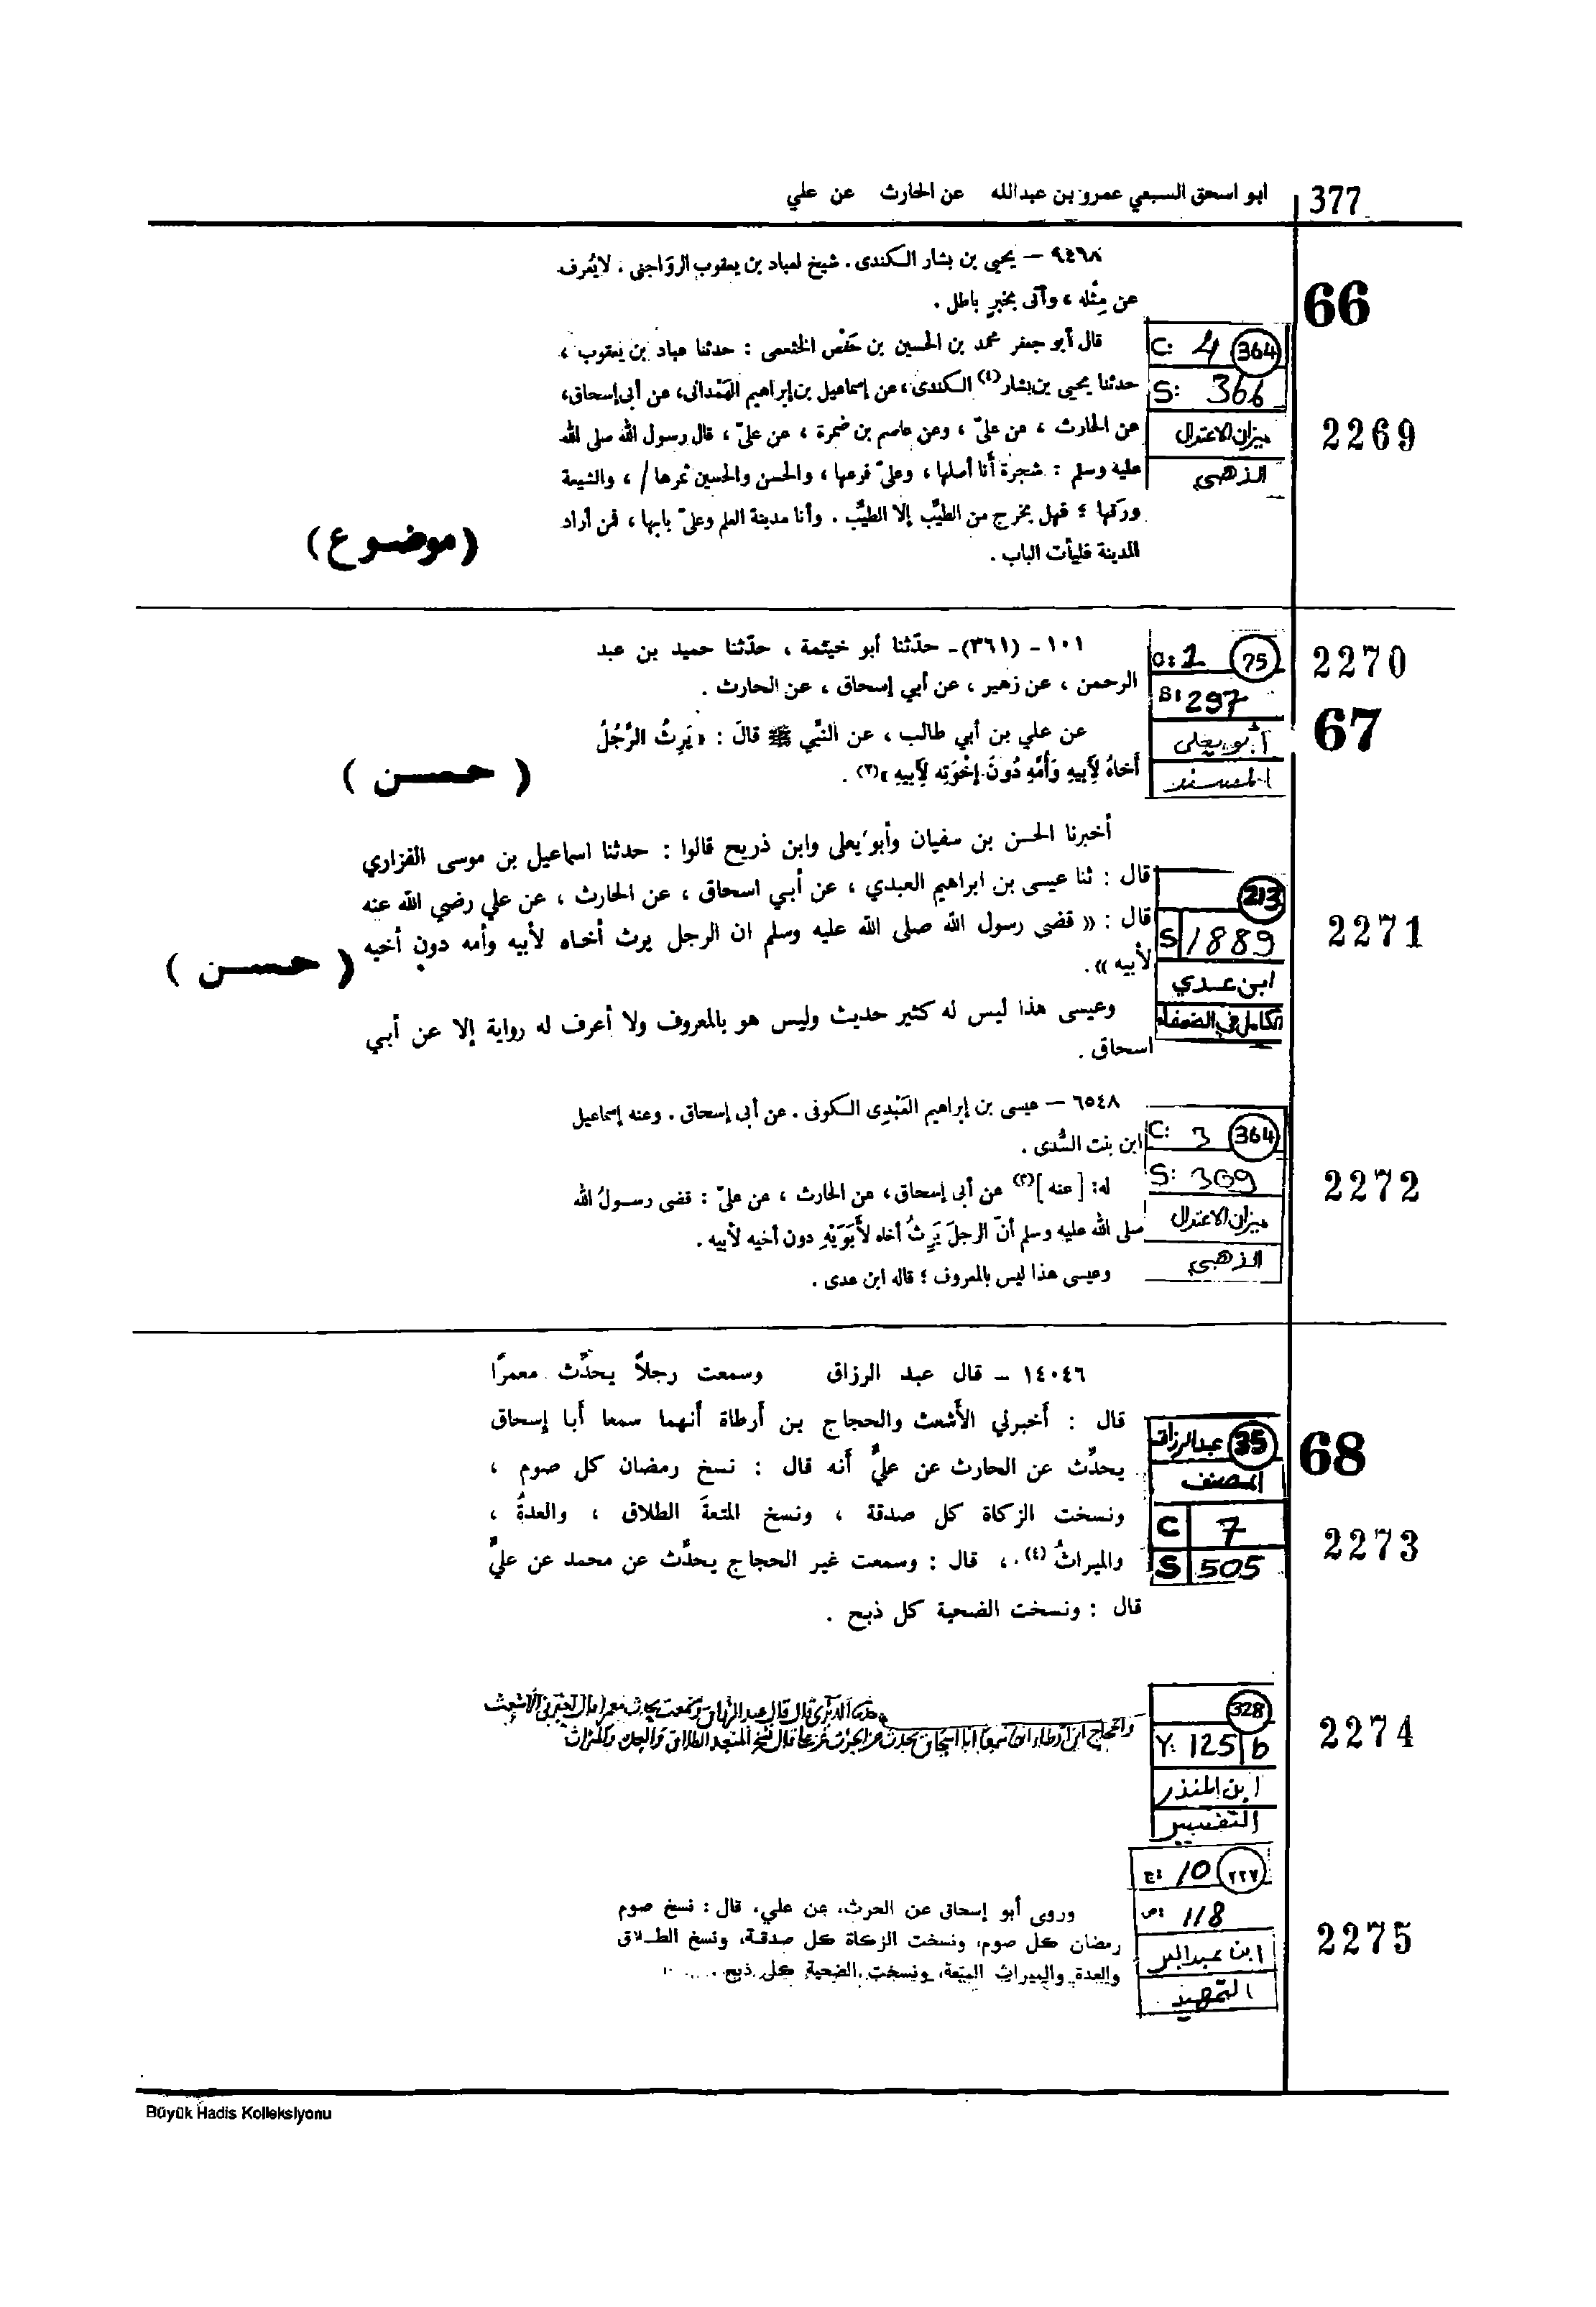 377 ابو اسحق السبعي عمرو بن عبدالله عن الحارث عن علي
66
٩٤٦٨ – يحيى بن بشار الكندى. شيخ لعباد بن يعقوب الرواجنى. لا يُعرف
عن مِثْله ، وأتى بخبرٍ باطل .
C: 4 (364)
S: 366
ميزان الاعتدال
الذهبي
2269
قال أبو جعفر محمد بن الحسين بن حَفْص الخثعمى : حدثنا عباد بن يعقوب ،
حدثنا يحيى بن بشار(٤) الكندى، عن إسماعيل بن إبراهيم الهَمْدانى، عن أبى إسحاق،
عن الحارث ، عن علىّ ، وعن عاصم بن ضمرة ، عن علىّ ، قال رسول الله صلى الله
عليه وسلم : شجرة أنا أصلها ، وعلىّ فرعها ، والحسن والحسين ثمرها/ ، والشيعة
ورَقها ؛ فهل يخرج من الطيِّب إلا الطيِّب . وأنا مدينة العلم وعلىّ بابها ، فمن أراد
المدينة فليأت الباب .
(موضوع)
2270
67
C: 1 (75)
S: 297
أبو يعلى
المسند
١٠١ - (٣٦١)- حدّثنا أبو خيثمة ، حدّثنا حميد بن عبد
الرحمن ، عن زهير ، عن أبي إسحاق ، عن الحارث .
عن علي بن أبي طالب ، عن النّبي ﷺ قالَ : « يَرِثُ الرَّجُلُ
أَخاهُ لِأَبِيهِ وَأُمِّهِ دُونَ إِخْوَتِهِ لِأَبِيهِ »(٢) .
( حسن )
أخبرنا الحسن بن سفيان وأبو يعلى وابن ذريح قالوا : حدثنا اسماعيل بن موسى الفزاري
قال : ثنا عيسى بن ابراهيم العبدي ، عن أبي اسحاق ، عن الحارث ، عن علي رضي الله عنه
قال : « قضى رسول الله صلى الله عليه وسلم ان الرجل يرث أخاه لأبيه وأمه دون أخيه
لأبيه » .
( حسن )
213
S 1889
ابن عدي
الكامل في الضعفاء
2271
وعيسى هذا ليس له كثير حديث وليس هو بالمعروف ولا أعرف له رواية إلا عن أبي
اسحاق .
٦٥٤٨ – عيسى بن إبراهيم العَبْدِى الكوفى . عن أبى إسحاق . وعنه إسماعيل
ابن بنت السُّدى .
C: 3 (364)
S: 309
ميزان الاعتدال
الذهبي
2272
له: [عنه](٢) عن أبى إسحاق، عن الحارث ، عن علىّ : قضى رسولُ الله
صلى الله عليه وسلم أنّ الرجلَ يَرِثُ أخاه لأَبَوَيْهِ دون أخيه لأبيه .
وعيسى هذا ليس بالمعروف ؛ قاله ابن عدى .
١٤٠٤٦ - قال عبد الرزاق وسمعت رجلاً يحدِّث معمرًا
قال : أخبرني الأشعث والحجاج بن أرطاة أنهما سمعا أبا إسحاق
يحدِّث عن الحارث عن عليٍّ أنه قال : نسخ رمضان كل صوم ،
ونسخت الزكاة كل صدقة ، ونسخ المتعةَ الطلاق ، والعدةُ ،
والميراثُ(٤) ، قال : وسمعت غير الحجاج يحدِّث عن محمد عن عليٍّ
قال : ونسخت الضحية كل ذبح .
عبدالرزاق (35)
المصنف
C 7
S 505
68
2273
حدثنا الدبري قال قال عبد الرزاق وسمعت يحدث معمرا قال اخبرني الاشعث
والحجاج ابن ارطاه انهما سمعا ابا اسحاق يحدث عن الحرث عن علي قال نسخ المتعه الطلاق والعده والميراث
328
Y: 125 b
ابن المنذر
التفسير
2274
ج: 10 (٢٢٧)
ص: 118
ابن عبدالبر
التمهيد
2275
وروى أبو إسحاق عن الحرث، عن علي، قال : نسخ صوم
رمضان كل صوم، ونسخت الزكاة كل صدقة، ونسخ الطلاق
والعدة والميراث المتعة، ونسخت الضحية كل ذبح
Büyük Hadis Kolleksiyonu